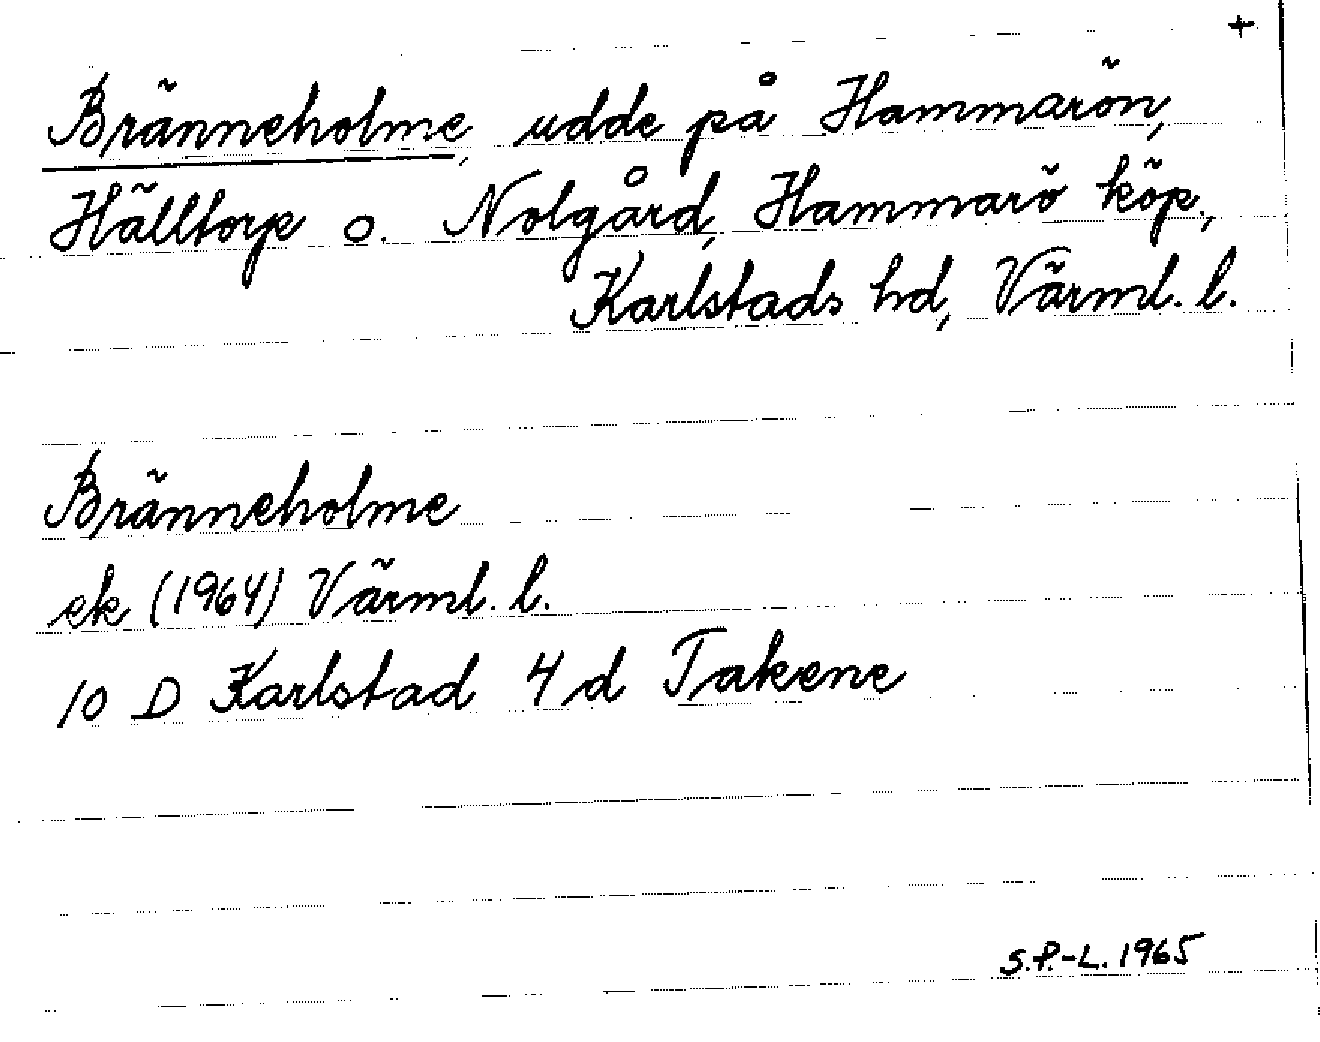 +
Bränneholme, udde på Hammarön,
Hälltorp o. Nolgård, Hammarö köp.,
Karlstads hd, Värml. l.
Bränneholme
ek (1964) Värml. l.
10 D Karlstad 4 d Takene
S.P.-L. 1965